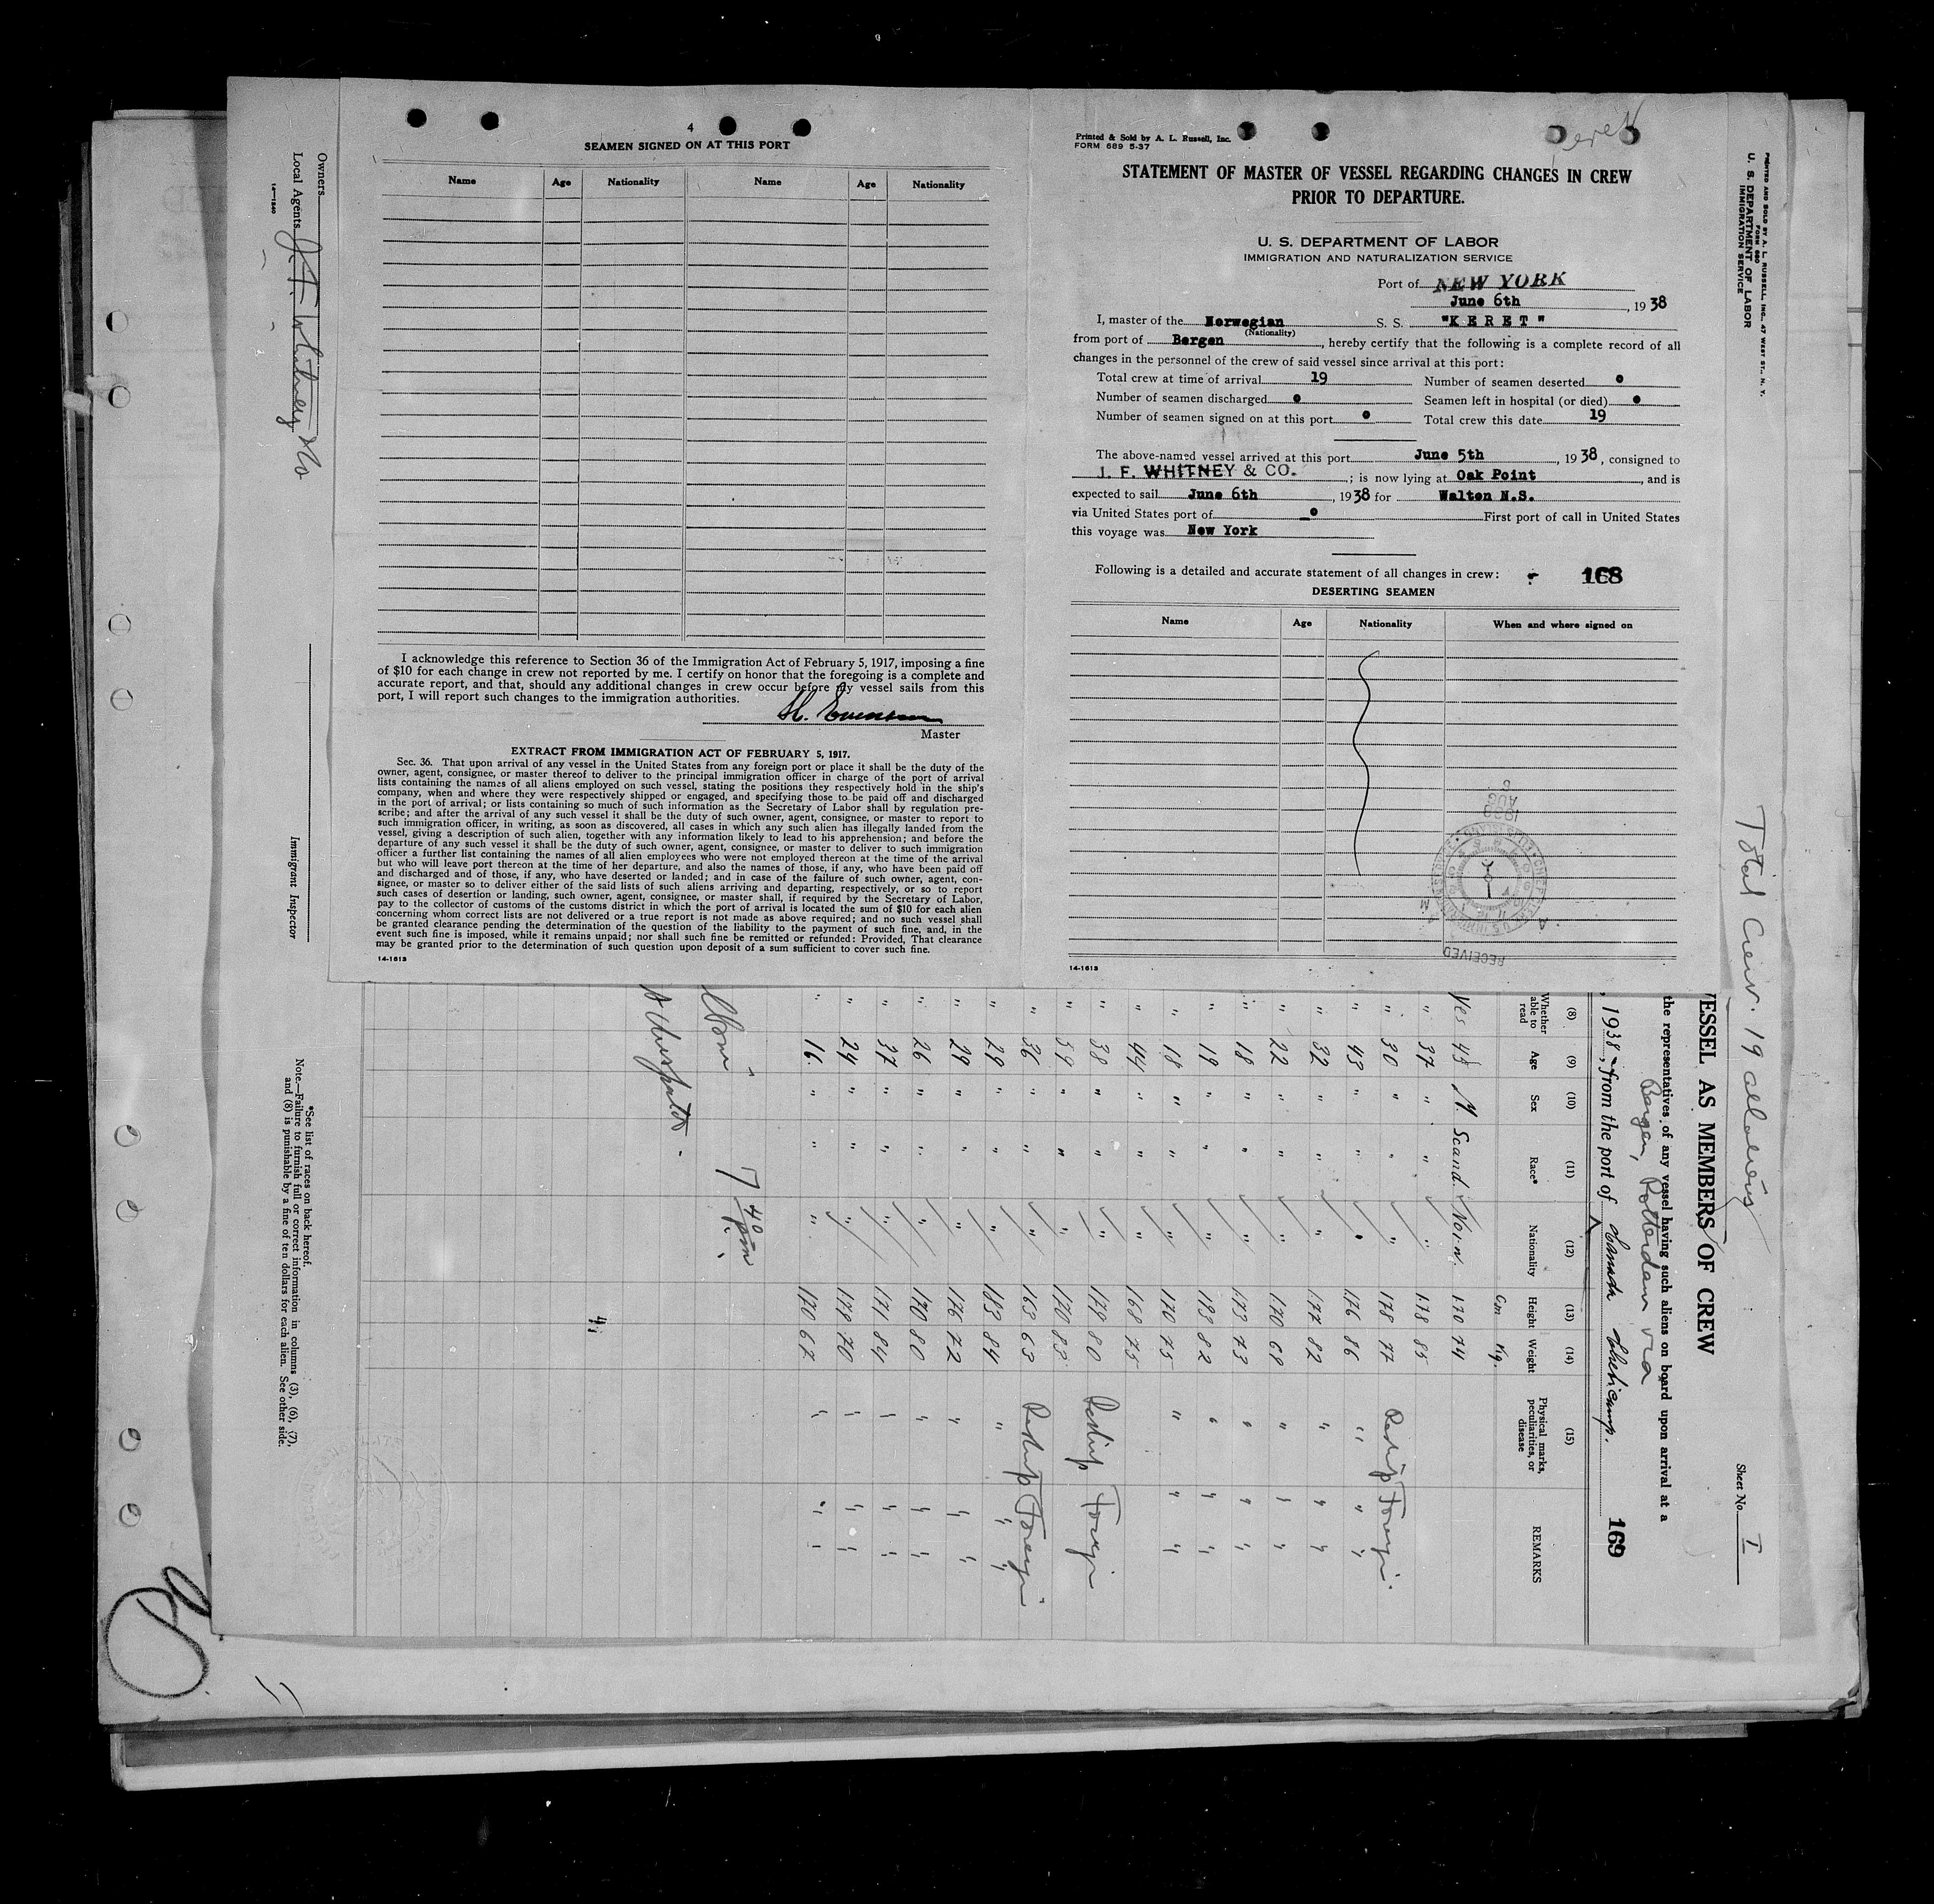 4
SEAMEN SIGNED ON AT THIS PORT
Name Age Nationality Name Age Nationality
I acknowledge this reference to Section 36 of the Immigration Act of February 5, 1917, imposing a fine
of $10 for each change in crew not reported by me. I certify on honor that the foregoing is a complete and
accurate report, and that, should any additional changes in crew occur before my vessel sails from this
port, I will report such changes to the immigration authorities.
Master
EXTRACT FROM IMMIGRATION ACT OF FEBRUARY 5, 1917.
Sec. 36. That upon arrival of any vessel in the United States from any foreign port or place it shall be the duty of the
owner, agent, consignee, or master thereof to deliver to the principal immigration officer in charge of the port of arrival
lists containing the names of all aliens employed on such vessel, stating the positions they respectively hold in the ship's
company, when and where they were respectively shipped or engaged, and specifying those to be paid off and discharged
in the port of arrival; or lists containing so much of such information as the Secretary of Labor shall by regulation pre-
scribe; and after the arrival of any such vessel it shall be the duty of such owner, agent, consignee, or master to report to
such immigration officer, in writing, as soon as discovered, all cases in which any such alien has illegally landed from the
vessel, giving a description of such alien, together with any information likely to lead to his apprehension; and before the
departure of any such vessel it shall be the duty of such owner, agent, consignee, or master to deliver to such immigration
officer a further list containing the names of all alien employees who were not employed thereon at the time of the arrival
but who will leave port thereon at the time of her departure, and also the names of those, if any, who have been paid off
and discharged and of those, if any, who have deserted or landed; and in case of the failure of such owner, agent, con-
signee, or master so to deliver either of the said lists of such aliens arriving and departing, respectively, or so to report
such cases of desertion or landing, such owner, agent, consignee, or master shall, if required by the Secretary of Labor,
pay to the collector of customs of the customs district in which the port of arrival is located the sum of $10 for each alien
concerning whom correct lists are not delivered or a true report is not made as above required; and no such vessel shall
be granted clearance pending the determination of the question of the liability to the payment of such fine, and, in the
event such fine is imposed, while it remains unpaid; nor shall such fine be remitted or refunded: Provided, That clearance
may be granted prior to the determination of such question upon deposit of a sum sufficient to cover such fine.
14-1613
Keret
Printed & Sold by A. L. Russell, Inc.
FORM 689 5-37
STATEMENT OF MASTER OF VESSEL REGARDING CHANGES IN CREW
PRIOR TO DEPARTURE.
U. S. DEPARTMENT OF LABOR
IMMIGRATION AND NATURALIZATION SERVICE
Port of NEW YORK
June 6th, 1938
I, master of the Norwegian S. S. "KERET"
(Nationality)
from port of Bergen, hereby certify that the following is a complete record of all
changes in the personnel of the crew of said vessel since arrival at this port:
Total crew at time of arrival 19 Number of seamen deserted 0
Number of seamen discharged 0 Seamen left in hospital (or died) 0
Number of seamen signed on at this port 0 Total crew this date 19
The above-named vessel arrived at this port June 5th, 1938, consigned to
J. F. WHITNEY & CO.; is now lying at Oak Point, and is
expected to sail June 6th, 1938 for Walton N.S.
via United States port of 0 First port of call in United States
this voyage was New York
Following is a detailed and accurate statement of all changes in crew: 168
DESERTING SEAMEN
Name Age Nationality When and where signed on
RECEIVED
14-1613
PRINTED AND SOLD BY A. L. RUSSELL, INC., 47 WEST ST., N. Y.
FORM 680
U. S. DEPARTMENT OF LABOR
IMMIGRATION SERVICE
Total Crew. 19 all aliens
Sheet No. I
VESSEL AS MEMBERS OF CREW
the representatives of any vessel having such aliens on board upon arrival at a
Bergen, Rotterdam via
, 1938, from the port of Canada Cheticamp.
169
(8) (9) (10) (11) (12) (13) (14) (15)
Whether able to read Age Sex Race* Nationality Height Weight Physical marks, peculiarities, or disease REMARKS
Cm Kg.
Yes 43 M. Scand. Norw. 170 74
" 37 " " " 178 85
" 30 " " " 178 77 Reship Foreign
" 43 " " " 176 86 " " "
" 32 " " " 177 82 " " "
" 22 " " " 170 68 " " "
" 18 " " " 173 73 " " "
" 19 " " " 193 82 " " "
" 18 " " " 170 75 " " "
" 44 " " " 168 75
" 38 " " " 179 80 Reship Foreign
" 59 " " " 170 83
" 36 " " " 163 63 Reship Foreign
" 29 " " " 183 84 " " "
" 29 " " " 176 72 " " "
" 26 " " " 170 80 " " "
" 37 " " " 171 84 " " "
" 24 " " " 179 70 " " "
" 16 " " " 170 67 " " "
7 40 pm
Owners
Local Agents J. F. Whitney & Co
14-1240
Immigrant Inspector
*See list of races on back hereof.
Note.—Failure to furnish full or correct information in columns (3), (6), (7),
and (8) is punishable by a fine of ten dollars for each alien. See other side.